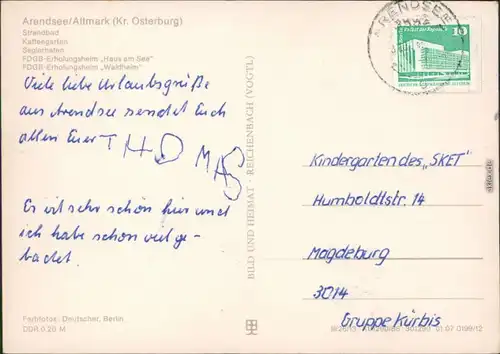 Arendsee/Altmark (Kr. Osterburg)
Strandbad
Kaffeegarten
Seglerhafen
FDGB-Erholungsheim „Haus am See"
FDGB-Erholungsheim „Waldheim"
Viele liebe Urlaubsgrüße
aus Arendsee sendet Euch
allen Euer THOMAS
Es ist sehr schön hier und
ich habe schon viel ge-
badet.
Farbfotos: Deutscher, Berlin
DDR 0,20 M
BILD UND HEIMAT · REICHENBACH (VOGTL)
ARENDSEE
10
Kindergarten des „SKET"
Humboldtstr. 14
Magdeburg
3014
Gruppe Kürbis
01 07 0199/12